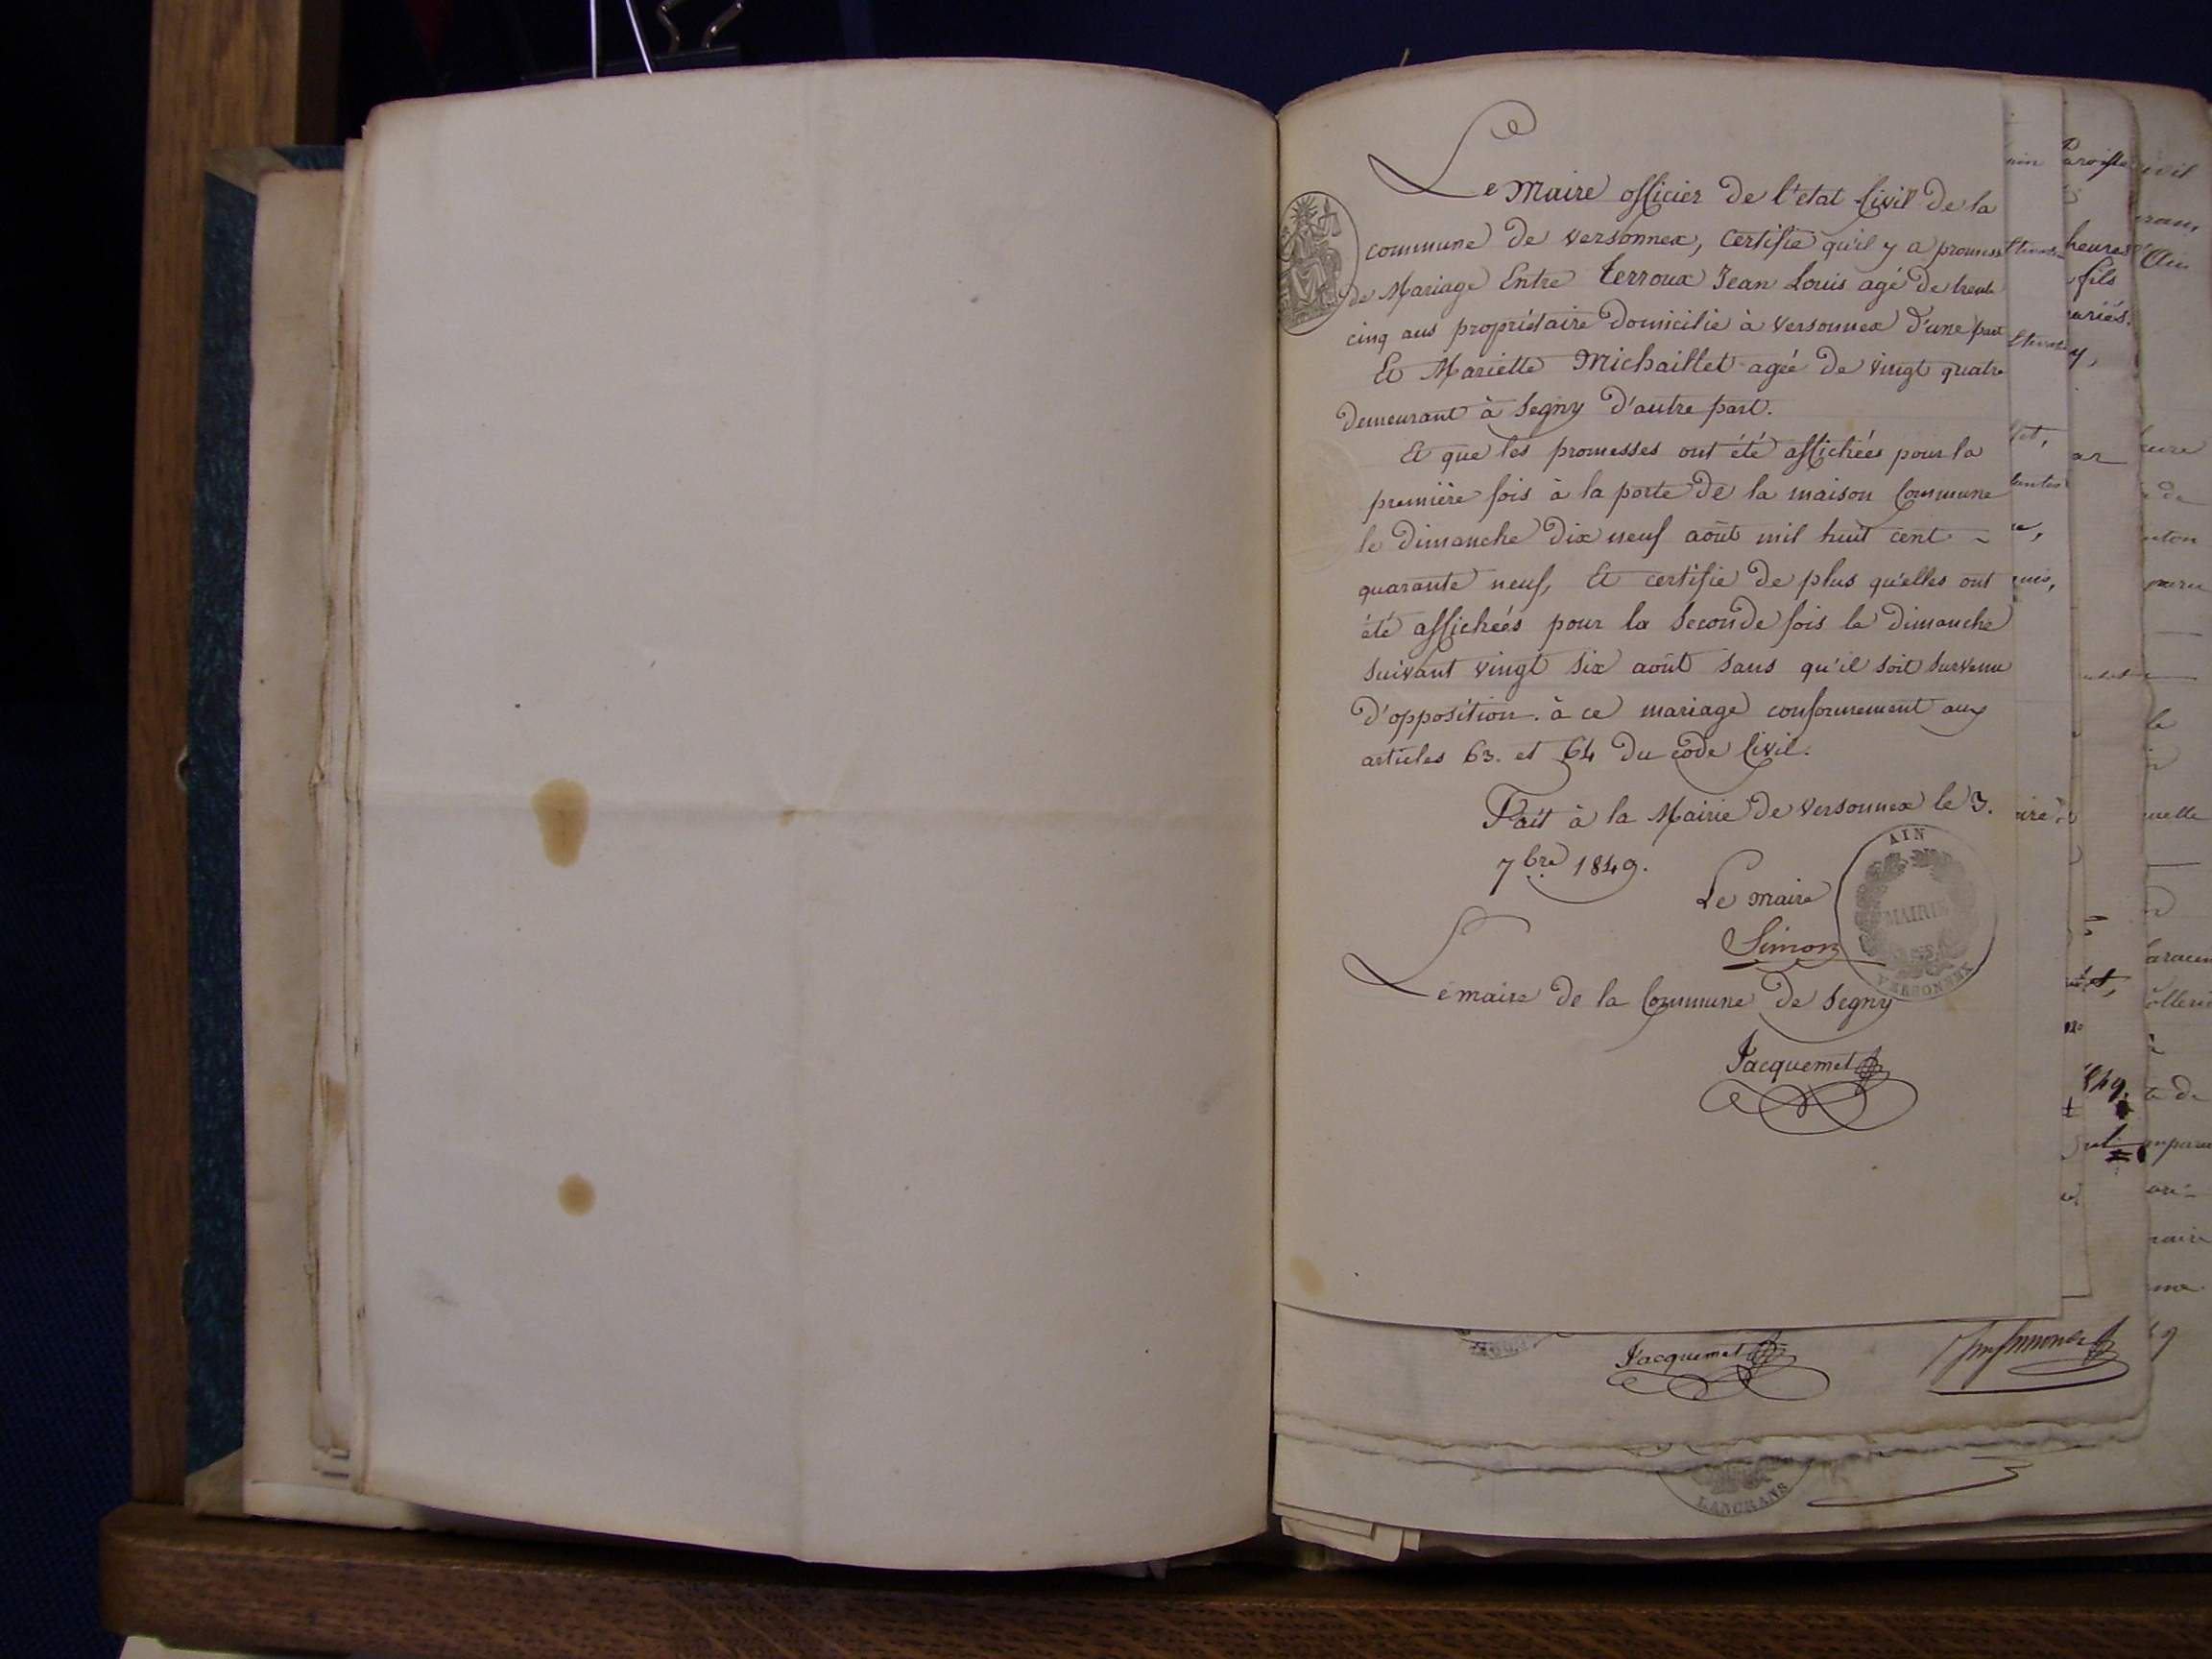 Le Maire officier de l'etat Civil de la
commune de versonnex, Certifie qu'il y a promess
de Mariage Entre terroux Jean Louis agé de trente
cinq ans propriétaire Domicilié à versonnex d'une part
Et Mariette Michaillet agée de vingt quatre
demeurant à Segny d'autre part.
Et que les promesses ont été affichées pour la
première fois à la porte de la maison Commune
le Dimanche Dix neuf août mil huit cent
quarante neuf, Et certifie de plus qu'elles ont
été affichées pour la seconde fois le Dimanche
suivant vingt six août sans qu'il soit survenu
d'opposition. à ce mariage conformement aux
articles 63. et 64 du code Civil.
Fait à la Mairie de versonnex le 3.
7bre 1849.
Le maire
Simon
AIN
MAIRIE
VERSONNEX
Le maire de la Commune de Segny
Jacquemet
Jacquemet
LANCRANS
heures
fils
ariés.